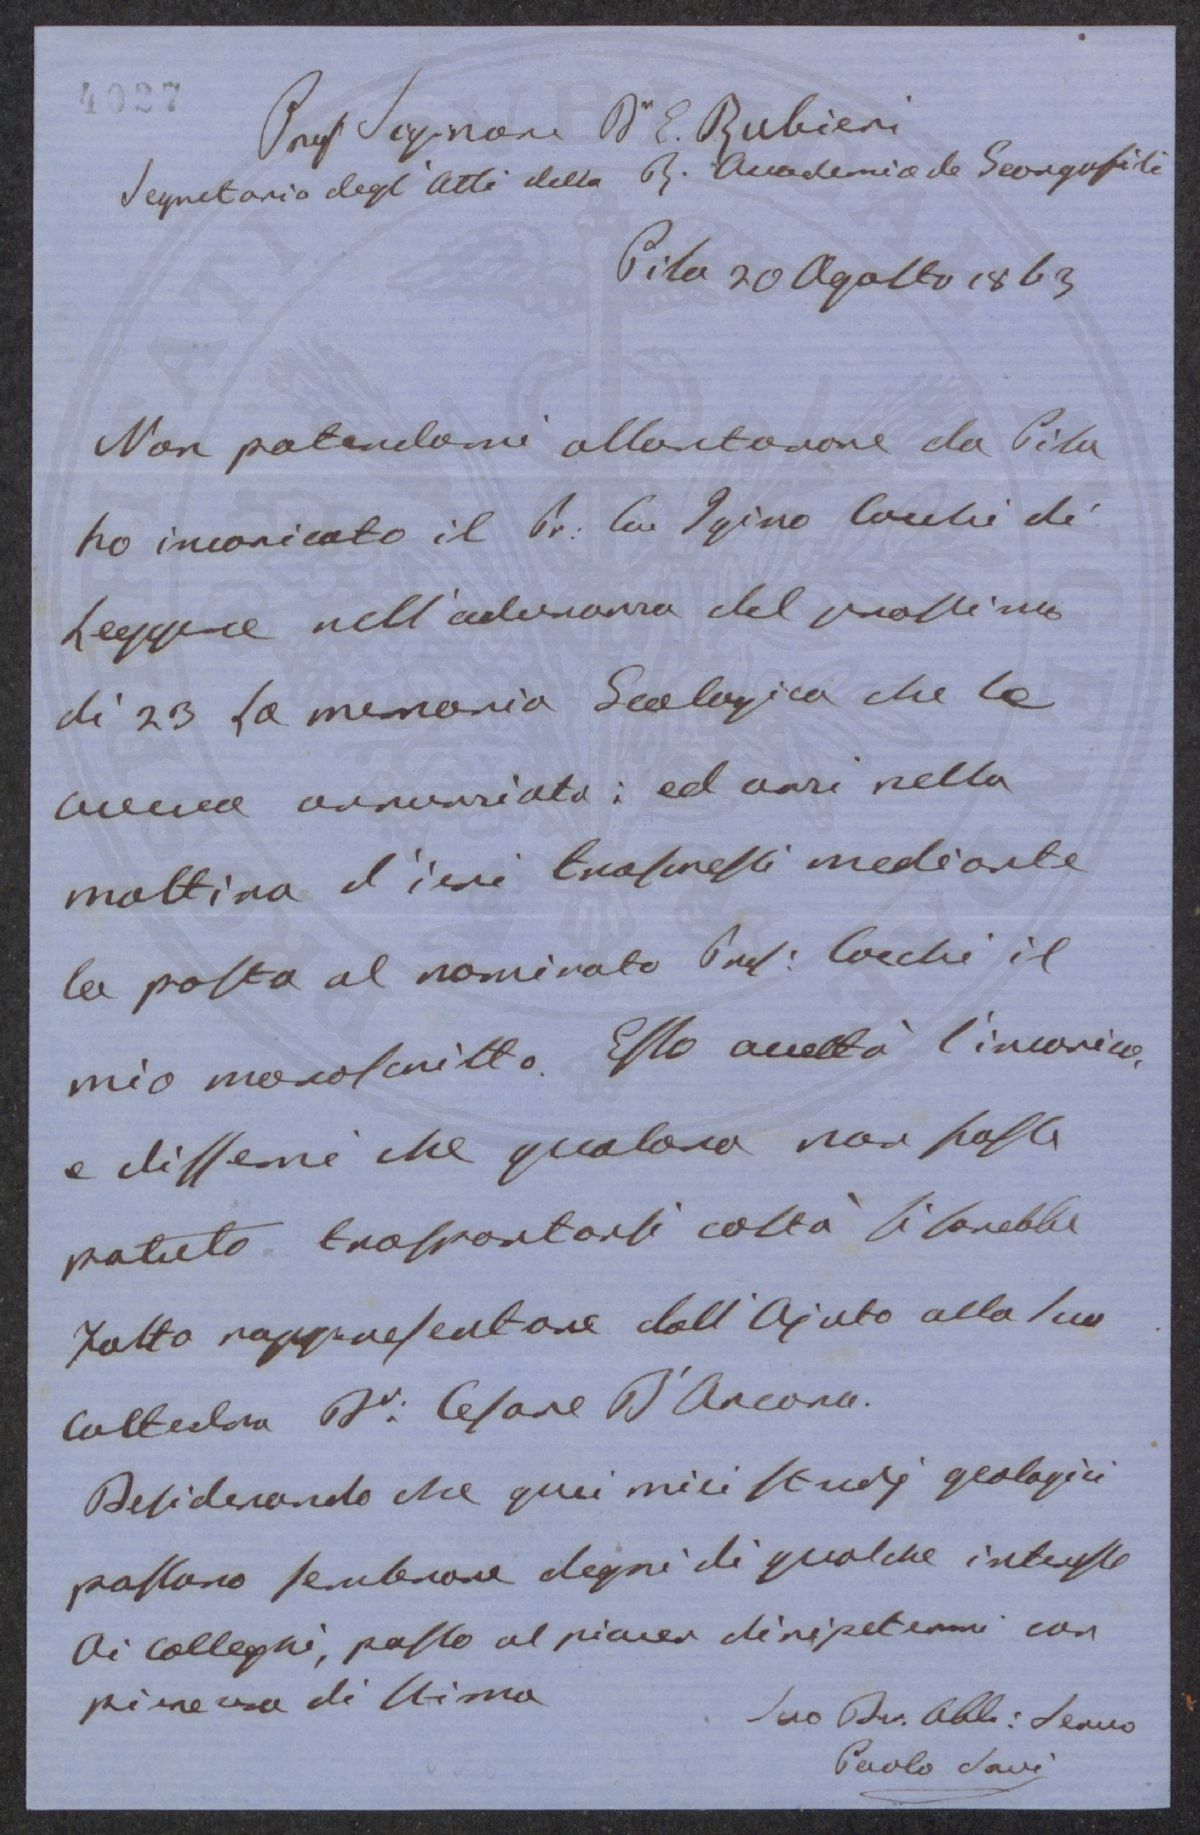 4027
Preg Signore Dr E. Rubieri
Segretario degl'Atti della R. Accademia de Georgofili
Pisa 20 Agosto 1863
Non potendomi allontanare da Pisa
ho incaricato il Pr. Igino Cocchi di
leggere nell'adunanza del prossimo
dì 23 la memoria Geologica che le
aveva annunziata: ed anzi nella
mattina d'ieri trasmessi mediante
la posta al nominato Prof: Cocchi il
mio manoscritto. Esso accettò l'incarico,
e dissemi che qualora non fosse
potuto trasportarsi costà si sarebbe
fatto rappresentare dall'Ajuto alla sua
Cattedra Dr: Cesare D'Ancona.
Desiderando che quei miei studj geologici
possano sembrare degni di qualche interesse
ai colleghi, passo al piacer di ripetermi con
pienezza di stima
Suo Dev. Obb: Servo
Paolo Savi